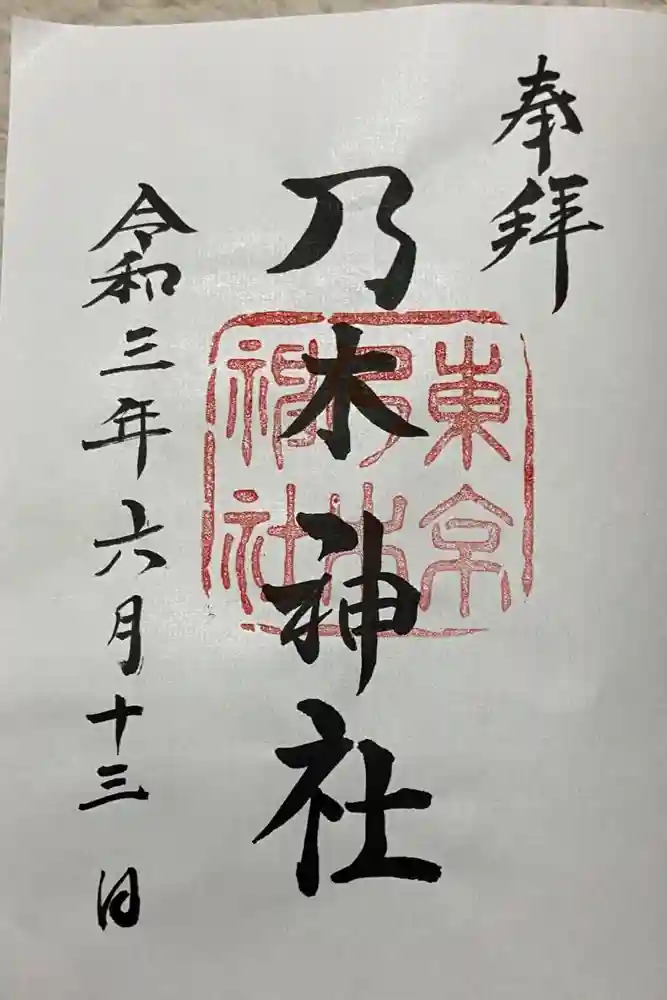 奉拝
乃木神社
東京
乃木
神社
令和三年六月十三日